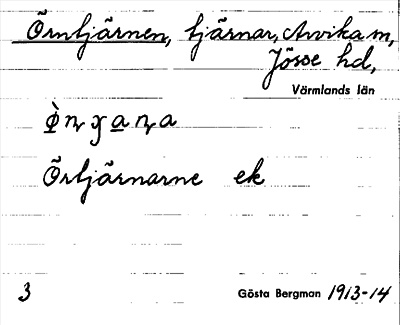 Örntjärnen, tjärnar, Arvika m,
Jösse hd,
Värmlands län
Örtjärnarne ek
3 Gösta Bergman 1913-14